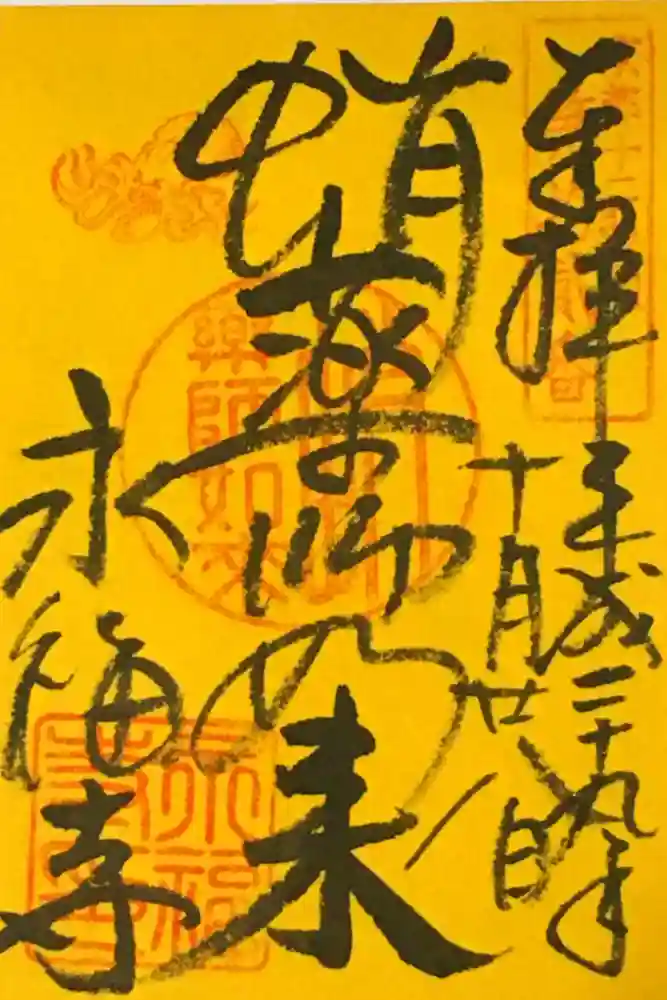 奉拝
平成二十九年
十月廿八日
蛸薬師如来
永福寺
薬師如来
永福